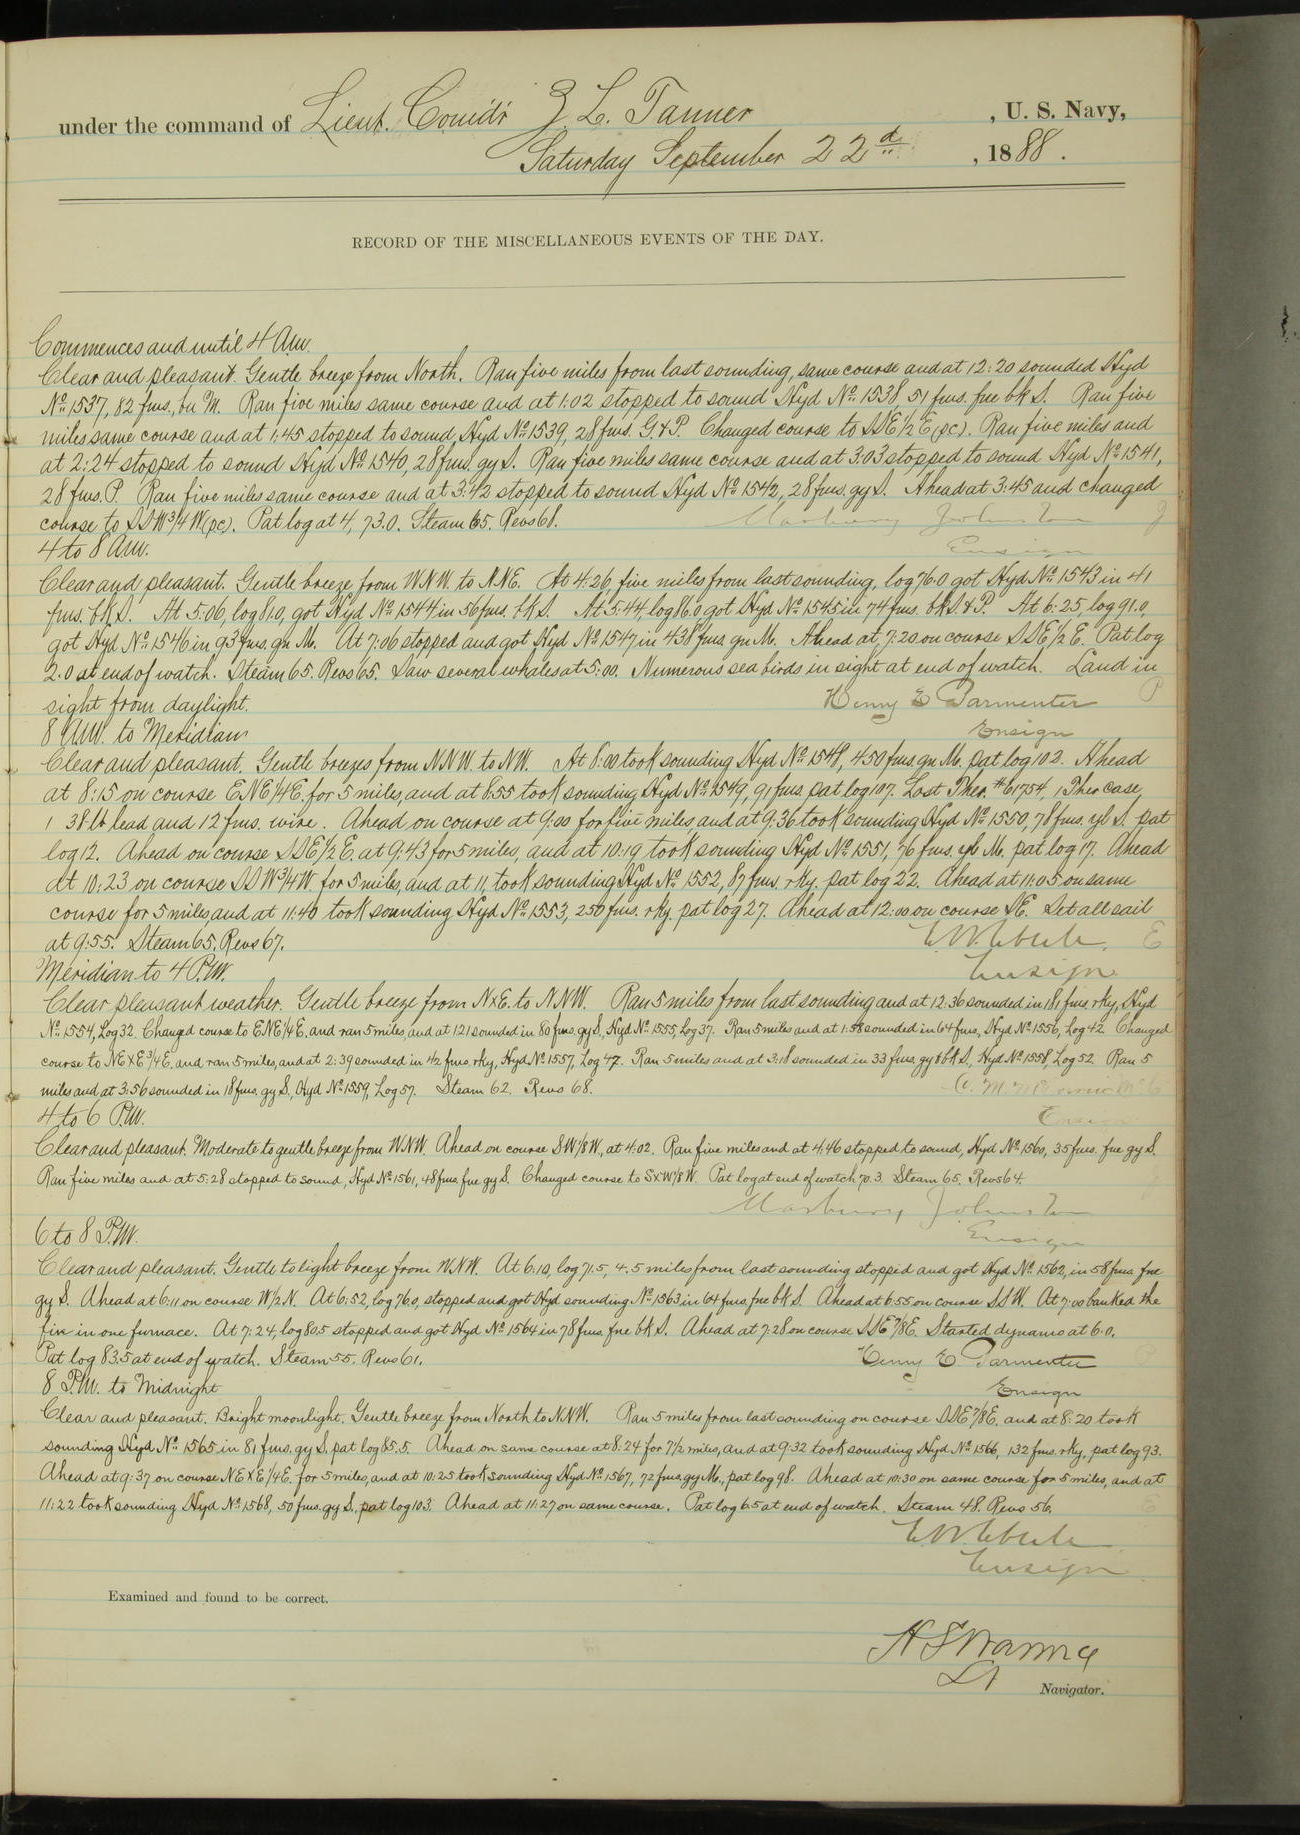 under the command of Lieut. Comdr Z. L. Tanner, U. S. Navy,
Saturday September 22d, 1888.
RECORD OF THE MISCELLANEOUS EVENTS OF THE DAY.
Commences and until 4 A.M.
Clear and pleasant. Gentle breeze from North. Ran five miles from last sounding, same course and at 12:20 sounded Hyd
No. 1537, 82 fms., bu M. Ran five miles same course and at 1:02 stopped to sound Hyd No. 1538 51 fms. fne bk S. Ran five
miles same course and at 1:45 stopped to sound, Hyd No. 1539, 28 fms. G. & P. Changed course to SSE 1/2 E (pc). Ran five miles and
at 2:24 stopped to sound Hyd No. 1540, 28 fms. gy S. Ran five miles same course and at 3:03 stopped to sound Hyd No. 1541,
28 fms. P. Ran five miles same course and at 3:42 stopped to sound Hyd No. 1542, 28 fms. gy S. Ahead at 3:45 and changed
course to SSW 3/4 W (pc). Pat log at 4, 73.0. Steam 65. Revs 68. Marbury Johnston J
4 to 8 A.M. Ensign
Clear and pleasant. Gentle breeze from WNW. to NNE. At 4:26, five miles from last sounding, log 76.0 got Hyd No. 1543 in 41
fms. bk S. At 5:06, log 81.0, got Hyd No. 1544 in 56 fms. bk S. At 5:44, log 86.0 got Hyd No. 1545 in 74 fms. bk S & P. At 6:25, log 91.0,
got Hyd No. 1546 in 93 fms. gn M. At 7:06 stopped and got Hyd No. 1547 in 438 fms. gn M. Ahead at 7:20 on course SSE 1/2 E. Pat log
2.0 at end of watch. Steam 65. Revs 65. Saw several whales at 5:00. Numerous sea birds in sight at end of watch. Land in
sight from daylight. Henry E Parmenter P
8 A.M. to Meridian Ensign
Clear and pleasant. Gentle breezes from NNW. to NW. At 8:00 took sounding Hyd No. 1548, 450 fms gn M. pat log 102. Ahead
at 8:15 on course ENE 1/4 E. for 5 miles, and at 8:55 took sounding Hyd No. 1549, 91 fms, pat log 107. Lost Ther. # 61754, 1 Ther case,
1 38 lb lead and 12 fms. wire. Ahead on course at 9:00 for five miles and at 9:36 took sounding Hyd No. 1550, 78 fms. yl S. pat
log 12. Ahead on course SSE 1/2 E. at 9:43 for 5 miles, and at 10:19 took sounding Hyd No. 1551, 76 fms. yl M. pat log 17. Ahead
at 10:23 on course SSW 3/4 W for 5 miles, and at 11, took sounding Hyd No. 1552, 87 fms. rky. pat log 22. Ahead at 11:05 on same
course for 5 miles and at 11:40 took sounding Hyd No. 1553, 250 fms. rky. pat log 27. Ahead at 12:00 on course SE. Set all sail
at 9:55. Steam 65, Revs 67. E. W. Eberle. E
Meridian to 4 P.M. Ensign
Clear pleasant weather. Gentle breeze from NxE. to NNW. Ran 5 miles from last sounding and at 12.36 sounded in 181 fms. rky, Hyd
No. 1554, Log 32. Changed course to ENE 1/4 E. and ran 5 miles and at 1:21 sounded in 80 fms. gy S, Hyd No. 1555, Log 37. Ran 5 miles and at 1:58 sounded in 64 fms, Hyd No. 1556, Log 42. Changed
course to NExE 3/4 E, and ran 5 miles, and at 2:39 sounded in 42 fms. rky, Hyd No. 1557, Log 47. Ran 5 miles and at 3:18 sounded in 33 fms. gy & bk S., Hyd No. 1558, Log 52. Ran 5
miles and at 3:56 sounded in 18 fms. gy S., Hyd No. 1559, Log 57. Steam 62. Revs 68. C. M.
4 to 6 P.M. Ensign
Clear and pleasant. Moderate to gentle breeze from WNW. Ahead on course SW 1/8 W, at 4:02. Ran five miles and at 4:46 stopped to sound, Hyd No. 1560, 35 fms. fne gy S.
Ran five miles and at 5:28 stopped to sound, Hyd No. 1561, 48 fms. fne gy S. Changed course to SxW 1/8 W. Pat log at end of watch 70.3. Steam 65. Revs 64.
Marbury Johnston
6 to 8 P.M. Ensign
Clear and pleasant. Gentle to light breeze from WNW. At 6:10, log 71.5, 4.5 miles from last sounding stopped and got Hyd No. 1562, in 58 fms. fne
gy S. Ahead at 6:11 on course W 1/2 N. At 6:52, log 76.0, stopped and got Hyd sounding No. 1563 in 64 fms. fne bk S. Ahead at 6:55 on course SSW. At 7:00 banked the
fire in one furnace. At 7:24, log 80.5 stopped and got Hyd No. 1564 in 78 fms. fne bk S. Ahead at 7:28 on course SSE 7/8 E. Started dynamo at 6.0.
Pat log 83.5 at end of watch. Steam 55. Revs 61. Henry E Parmenter
8 P.M. to Midnight Ensign
Clear and pleasant. Bright moonlight. Gentle breeze from North to NNW. Ran 5 miles from last sounding on course SSE 7/8 E. and at 8:20 took
sounding Hyd No. 1565 in 81 fms. gy S, pat log 85.5. Ahead on same course at 8:24 for 7 1/2 miles, and at 9:32 took sounding Hyd No. 1566, 132 fms. rky, pat log 93.
Ahead at 9:37 on course NExE 1/4 E. for 5 miles, and at 10:25 took sounding Hyd No. 1567, 72 fms. gy M., pat log 98. Ahead at 10:30 on same course for 5 miles, and at
11:22 took sounding Hyd No. 1568, 50 fms. gy S. pat log 103. Ahead at 11:27 on same course. Pat log 6.5 at end of watch. Steam 48. Revs 56.
E. W. Eberle
Ensign
Examined and found to be correct.
Lt Navigator.